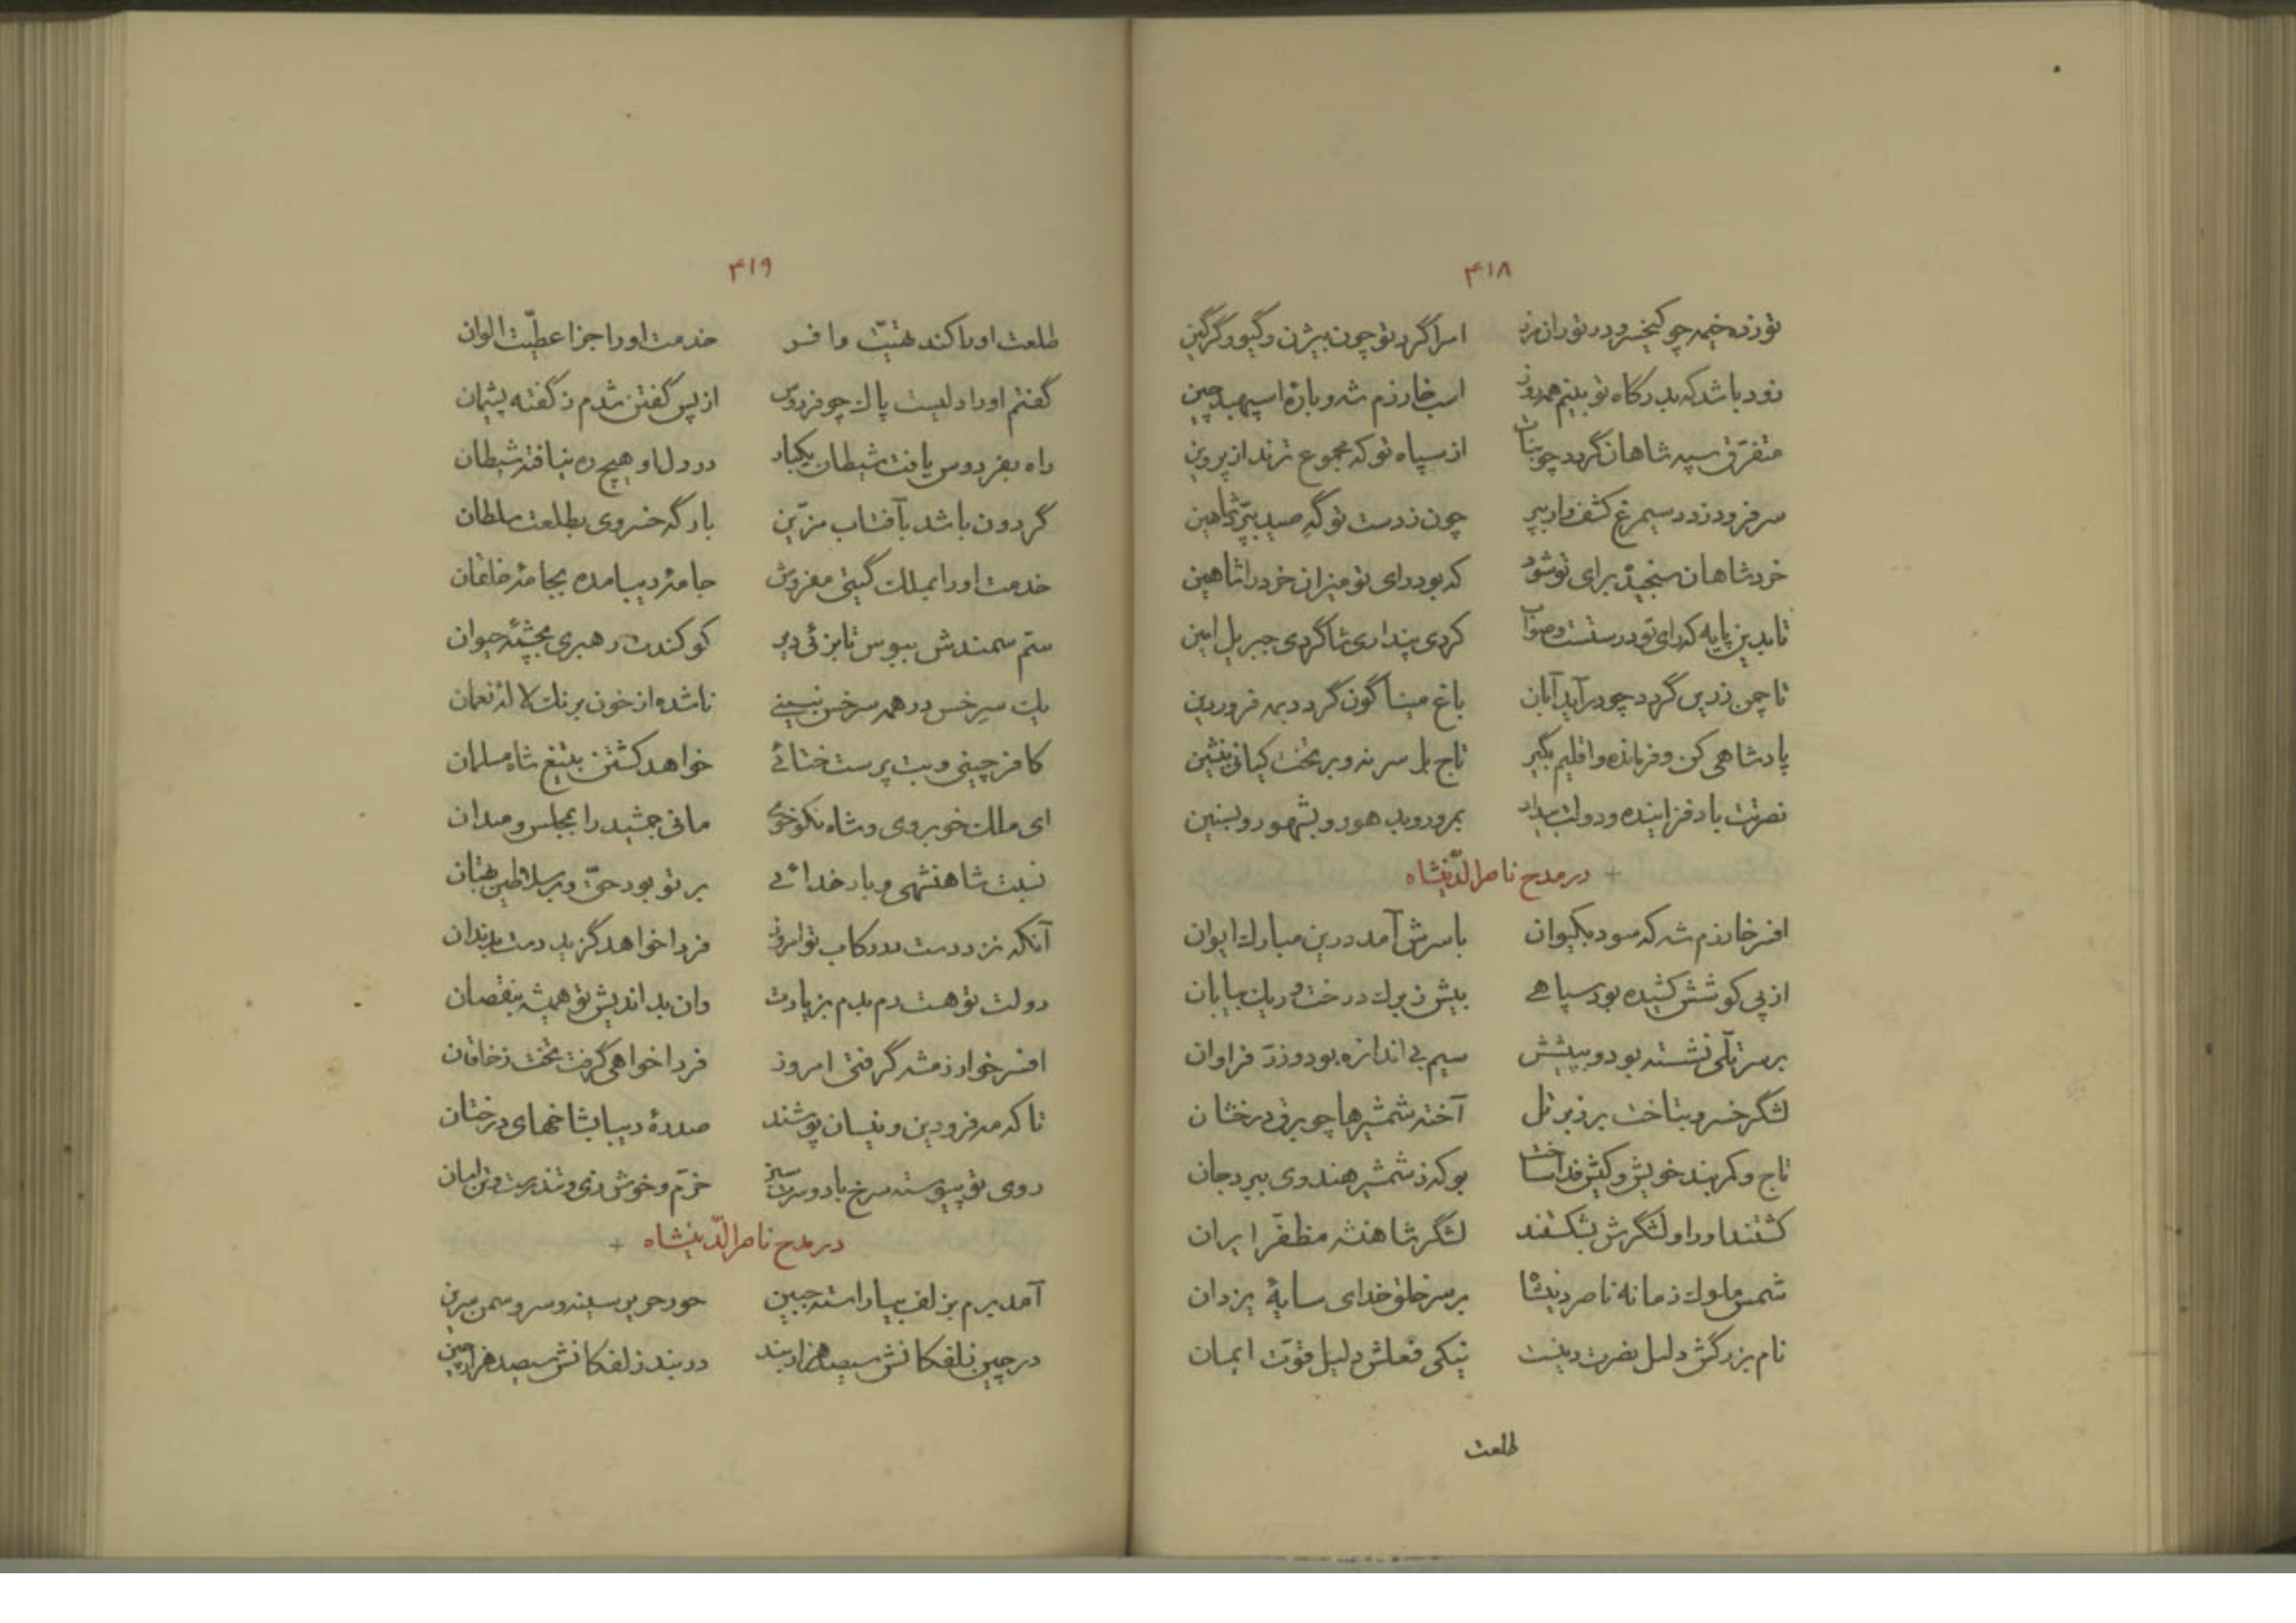 ۴۱۸
تو زده خیمه چو کیخسرو در توران مرز امرا گرد تو چون بیژن و گیو و گرگین
زود باشد که بدرگاه تو بینم همه روز اسب خارزم شه و بارهٔ اسپهبد چین
متفرق سپه شاهان گردد چو بنات از سپاه تو که مجموع ترند از پروین
سر فرود زدد سیمرغ کشف وار ببر چون ز دست تو گه صید بپرد شاهین
خرد شاهان سنجیده برای تو شود که بود رای تو میزان خرد را شاهین
تا بدین پایه که رای تو درستست و صواب کردی پنداری شاگردی جبریل امین
تا چمن زرین گردد چو درآید آبان باغ میناگون گردد بمه فروردین
پادشاهی کن و فرمانده و اقلیم بگیر تاج بر سر نه و بر تخت کیانی بنشین
نصرتت باد فزاینده و دولت بمراد بمرور و بدهور و بشهور و بسنین
در مدح ناصرالدینشاه
افسر خارزم شه که سود بکیوان با سرش آمد درین مبارک ایوان
از پی کوشش کشیده بود سپاهی بیش ز برک درخت و ریک بیابان
بر سر تلی نشسته بود و به پیشش سیم بی اندازه بود و زر فراوان
لشگر خسرو بتاخت بر زبر تل آخته شمشیرها چو برق درخشان
تاج و کمربند خویش و کیش فدا ساخت بو که ز شمشیر هندوی ببرد جان
کشتند او را و لشگرش بشکستند لشگر شاهنشه مظفر ایران
شمس ملوک زمانه ناصر دینشاه بر سر خلق خدای سایهٔ یزدان
نام بزرگش دلیل نصرت دینست نیکی فعلش دلیل قوت ایمان
طلعت
۴۱۹
طلعت او را کند تهنیت وافر خدمت او را جزا عطیت الوان
گفتم او را دلیست پاک چو فردوس از پس گفتن شدم ز گفته پشیمان
راه بفردوس یافت شیطان یکبار در دل او هیچ ره نیافته شیطان
گردون باشد بآفتاب مزین بارگه خسروی بطلعت سلطان
خدمت او را بملک گیتی مفروش جامهٔ دیبا مده بجامهٔ خلقان
سم سمندش ببوس تا بزئی دیر کو کندت رهبری بچشمهٔ حیوان
یک سر خس در همه سرخس نبینی ناشده از خون برنک لالهٔ نعمان
کافر چینی و بت پرست ختائی خواهد کشتن بتیغ شاه مسلمان
ای ملک خوبروی و شاه نکوخوی مانی جمشید را بمجلس و میدان
نسبت شاهنشهی و بار خدائی بر تو بود حق و بر سلاطین بهتان
آنکه نزد دست در رکاب تو امروز فردا خواهد گزید دست بدندان
دولت تو هست دم بدم بزیادت وان بداندیش تو همیشه بنقصان
افسر خوارزمشه گرفتی امروز فردا خواهی گرفت تخت ز خاقان
تا که مه فرودین و نیسان پوشند صدرهٔ دیبا بشاخهای درختان
روی تو پیوسته سرخ باد و سرت سبز خرم و خوش زی و تندرست و تن آسان
در مدح ناصرالدینشاه
آمد برم بزلف بیاراسته جبین حور حریر سینه و سرو سمن سرین
در چین زلفکانش سیصد هزار بند در بند زلفکانش سیصد هزار چین